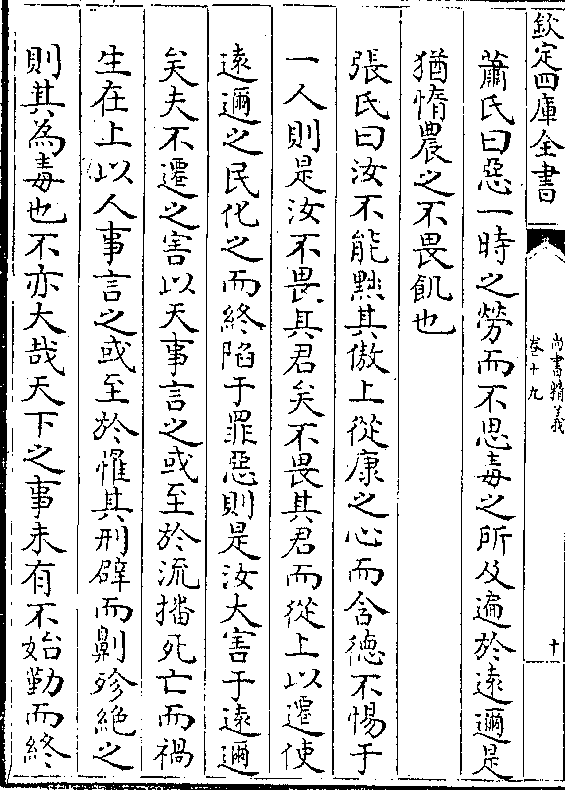 欽定四庫全書
尚書精義
卷十九
十
蕭氏曰惡一時之勞而不思毒之所及遍於遠邇是
猶惰農之不畏飢也
張氏曰汝不能黜其傲上從康之心而含德不惕于
一人則是汝不畏其君矣不畏其君而從上以遷使
遠邇之民化之而終陷于罪惡則是汝大害于遠邇
矣夫不遷之害以天事言之或至於流播死亡而禍
生在上以人事言之或至於懼其刑辟而劓殄絶之
則其為毒也不亦大哉天下之事未有不始勤而終